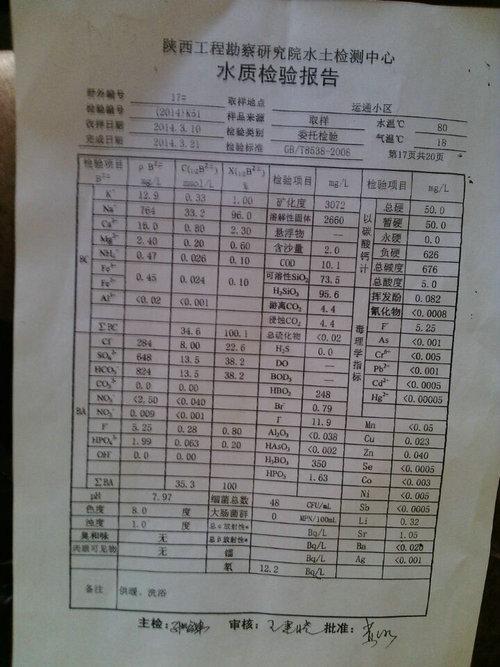 陕西工程勘察研究院水土检测中心
水质检验报告
野外编号 17# 取样地点 运通小区
检验编号 (2014)K51 样品来源 取样 水温℃ 80
收样日期 2014.3.10 检验类别 委托检验 气温℃ 18
完成日期 2014.3.21 检验标准 GB/T8538-2008 第17页共20页
检验项目 B^Z± ρB^Z± mg/L C(1/zB^Z±) mmol/L X(1/zB^Z±) % 检验项目 mg/L 检验项目 mg/L
BC
K⁺ 12.9 0.33 1.00 矿化度 3072 以碳酸钙计 总硬 50.0
Na⁺ 764 33.2 96.0 溶解性固体 2660 暂硬 50.0
Ca²⁺ 16.0 0.80 2.30 悬浮物 — 永硬 0.0
Mg²⁺ 2.40 0.20 0.60 含沙量 2.0 负硬 626
NH₄⁺ 0.47 0.026 0.10 COD 10.1 总碱度 676
Fe³⁺ Fe²⁺ 0.45 0.024 0.10 可溶性SiO₂ 73.5 总酸度 5.0
H₂SiO₃ 95.6 毒理学指标 挥发酚 0.082
Al³⁺ <0.02 <0.001 游离CO₂ 4.4 氰化物 <0.0008
侵蚀CO₂ 4.4 F⁻ 5.25
ΣBC 34.6 100.1 总硫化物 <0.02 As <0.001
BA
Cl⁻ 284 8.00 22.6 H₂S 0.0 Cr⁶⁺ <0.005
SO₄²⁻ 648 13.5 38.2 DO — Pb²⁺ <0.001
HCO₃⁻ 824 13.5 38.2 BOD₅ — Cd²⁺ <0.0005
CO₃²⁻ 0.0 0.00 HBO₂ 248 Hg²⁺ <0.00005
NO₃⁻ <2.50 <0.040 Br⁻ 0.79
NO₂⁻ 0.009 <0.001 I⁻ 11.9 Mn <0.05
F⁻ 5.25 0.28 0.80 Al₂O₃ <0.038 Cu 0.023
HPO₄²⁻ 1.99 0.063 0.20 HAsO₃ <0.002 Zn 0.040
OH⁻ 0.0 0.00 H₃BO₃ 350 Se <0.0005
HPO₃ 1.63 Co <0.003
ΣBA 35.3 100 Ni <0.005
pH 7.97 细菌总数 48 CFU/mL Sb <0.0005
色度 8.0 度 大肠菌群 0 MPN/100mL Li 0.32
浊度 1.0 度 总α放射性* Bq/L Sr 1.05
臭和味 无 总β放射性* Bq/L Ba <0.020
肉眼可见物 无 镭 Bq/L Ag <0.001
氡 12.2 Bq/L
备注 供暖、洗浴
主检: 审核: 批准: